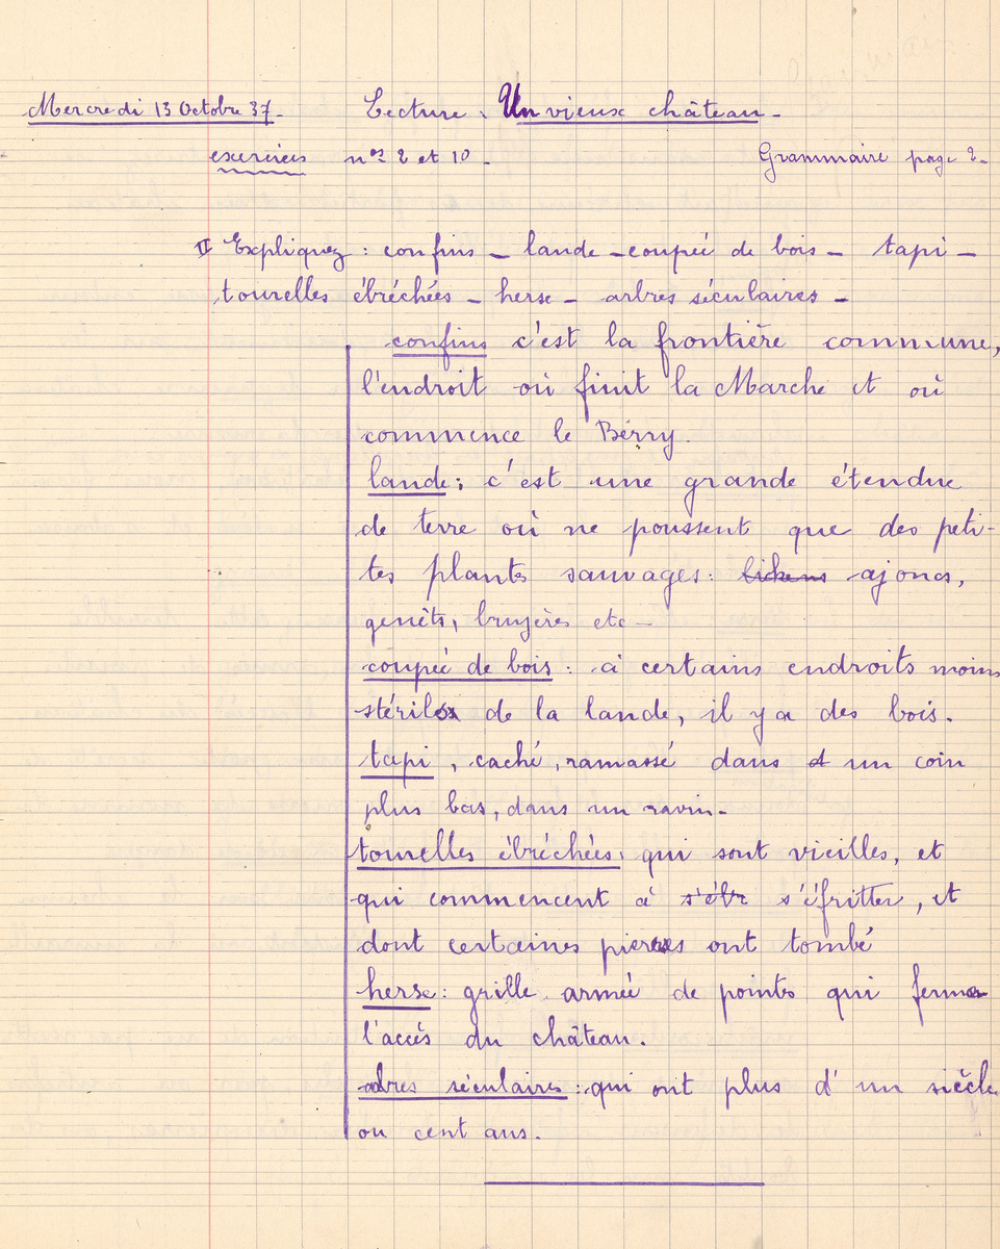 Mercredi 13 Octobre 37. Lecture. Un vieux château.
exercices nos 2 et 10. Grammaire page 2.
II Expliquez : confins - lande - coupée de bois - tapi -
tourelles ébréchées - herse - arbres séculaires -
confins c'est la frontière commune,
l'endroit où finit la Marche et où
commence le Berry.
lande ; c'est une grande étendue
de terre où ne poussent que des peti-
tes plants sauvages : lichens ajoncs,
genêts, bruyères etc -
coupée de bois : à certains endroits moins
stériles de la lande, il y a des bois.
tapi, caché, ramassé dans et un coin
plus bas, dans un ravin.
tourelles ébréchées, qui sont vieilles, et
qui commencent à s'ébr s'éfritter, et
dont certaines pierres ont tombé
herse : grille armée de points qui ferme
l'accès du château.
adres séculaires : qui ont plus d'un siècle
ou cent ans.